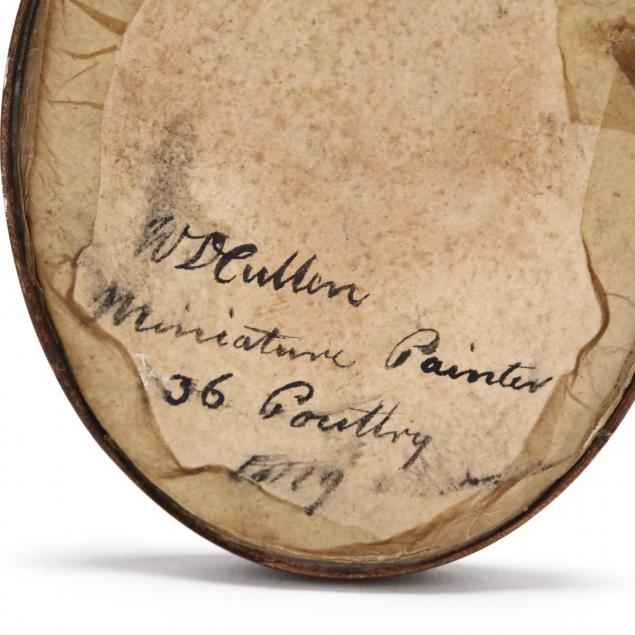 W D Cullen
Miniature Painter
36 Poultry